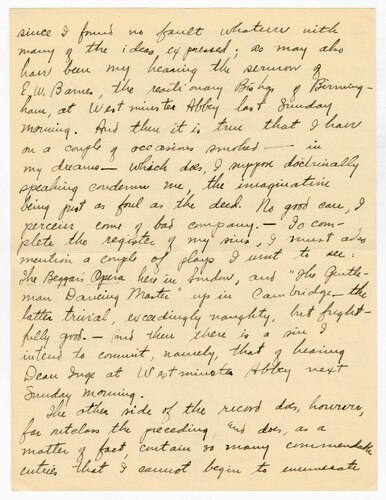 since I found no fault whatever with
many of the ideas expressed; as may also
have been my hearing the sermon of
E. W. Barnes, the reactionary Bishop of Birming-
ham, at Westminster Abbey last Sunday
morning. And then it is true that I have
on a couple of occasions smoked — in
my dreams — which does, I suppose doctrinally
speaking condemn me, the imagination
being just as foul as the deed. No good can, I
perceive, come of bad company. — To com-
plete the register of my sins, I must also
mention a couple of plays I went to see:
The Beggars Opera here in London, and "The Gentle-
man Dancing Master" up in Cambridge — the
latter trivial, exceedingly naughty, but fright-
fully good. — And then there is a sin I
intend to commit, namely, that of hearing
Dean Inge at Westminster Abbey next
Sunday morning.
The other side of the record does, however,
far outclass the preceding, and does, as a
matter of fact, contain so many commendable
entries that I cannot begin to enumerate